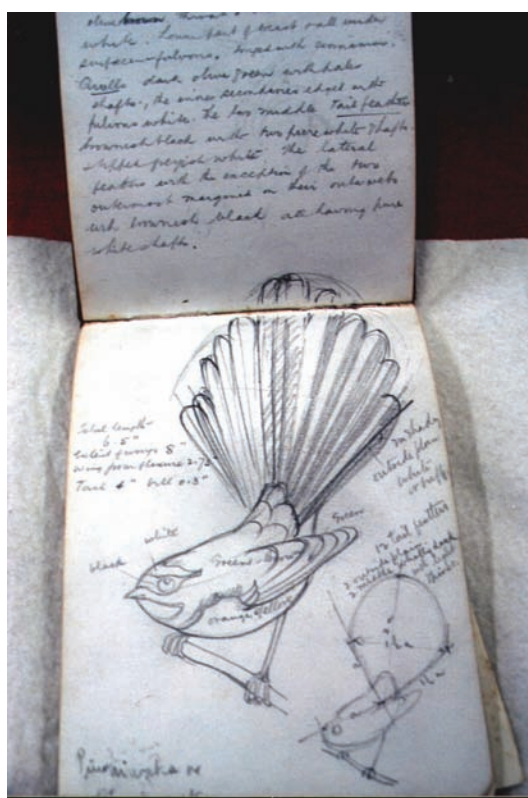 olive brown, throat
white. Lower part of breast and under
surfaces fulvous, tinged with cinnamon.
Quills dark olive green with pale
shafts, the inner secondaries edged with
fulvous white. The two middle tail feathers
brownish black with two pure white shafts
tipped greyish white The lateral
feathers with the exception of the two
outermost margined on their outer webs
with brownish black all having pure
white shafts.
Total length
6.5"
Extent of wings 8"
wing from flexure 2.75
Tail 4" bill 0.3"
shady
outside plain
white
or buff
white
black
Green
Greenish brown
orange yellow
12 tail feathers
2 outside plain
2 middle dark
Piwaiwaka or